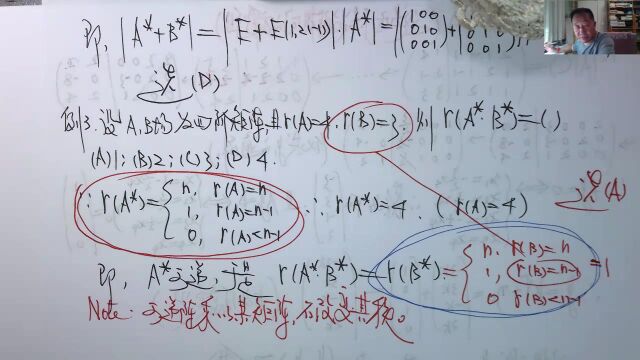 即, |A*+B*| = |E+E(1,2(-1))|·|A*| = |(1 0 0
0 1 0
0 0 1)+
选(D)
例3. 设A,B均为四阶矩阵,且r(A)=4, r(B)=3. 则 r(A*·B*)=( )
(A) 1; (B) 2; (C) 3; (D) 4.
选(A)
∵ r(A*)={ n, r(A)=n
1, r(A)=n-1
0, r(A)<n-1
∴ r(A*)=4. (r(A)=4)
即, A*可逆, 于是 r(A*·B*)=r(B*)={ n, r(B)=n
1, r(B)=n-1
0 r(B)<n-1
=1
Note: 可逆阵乘以某矩阵, 不改变其秩。